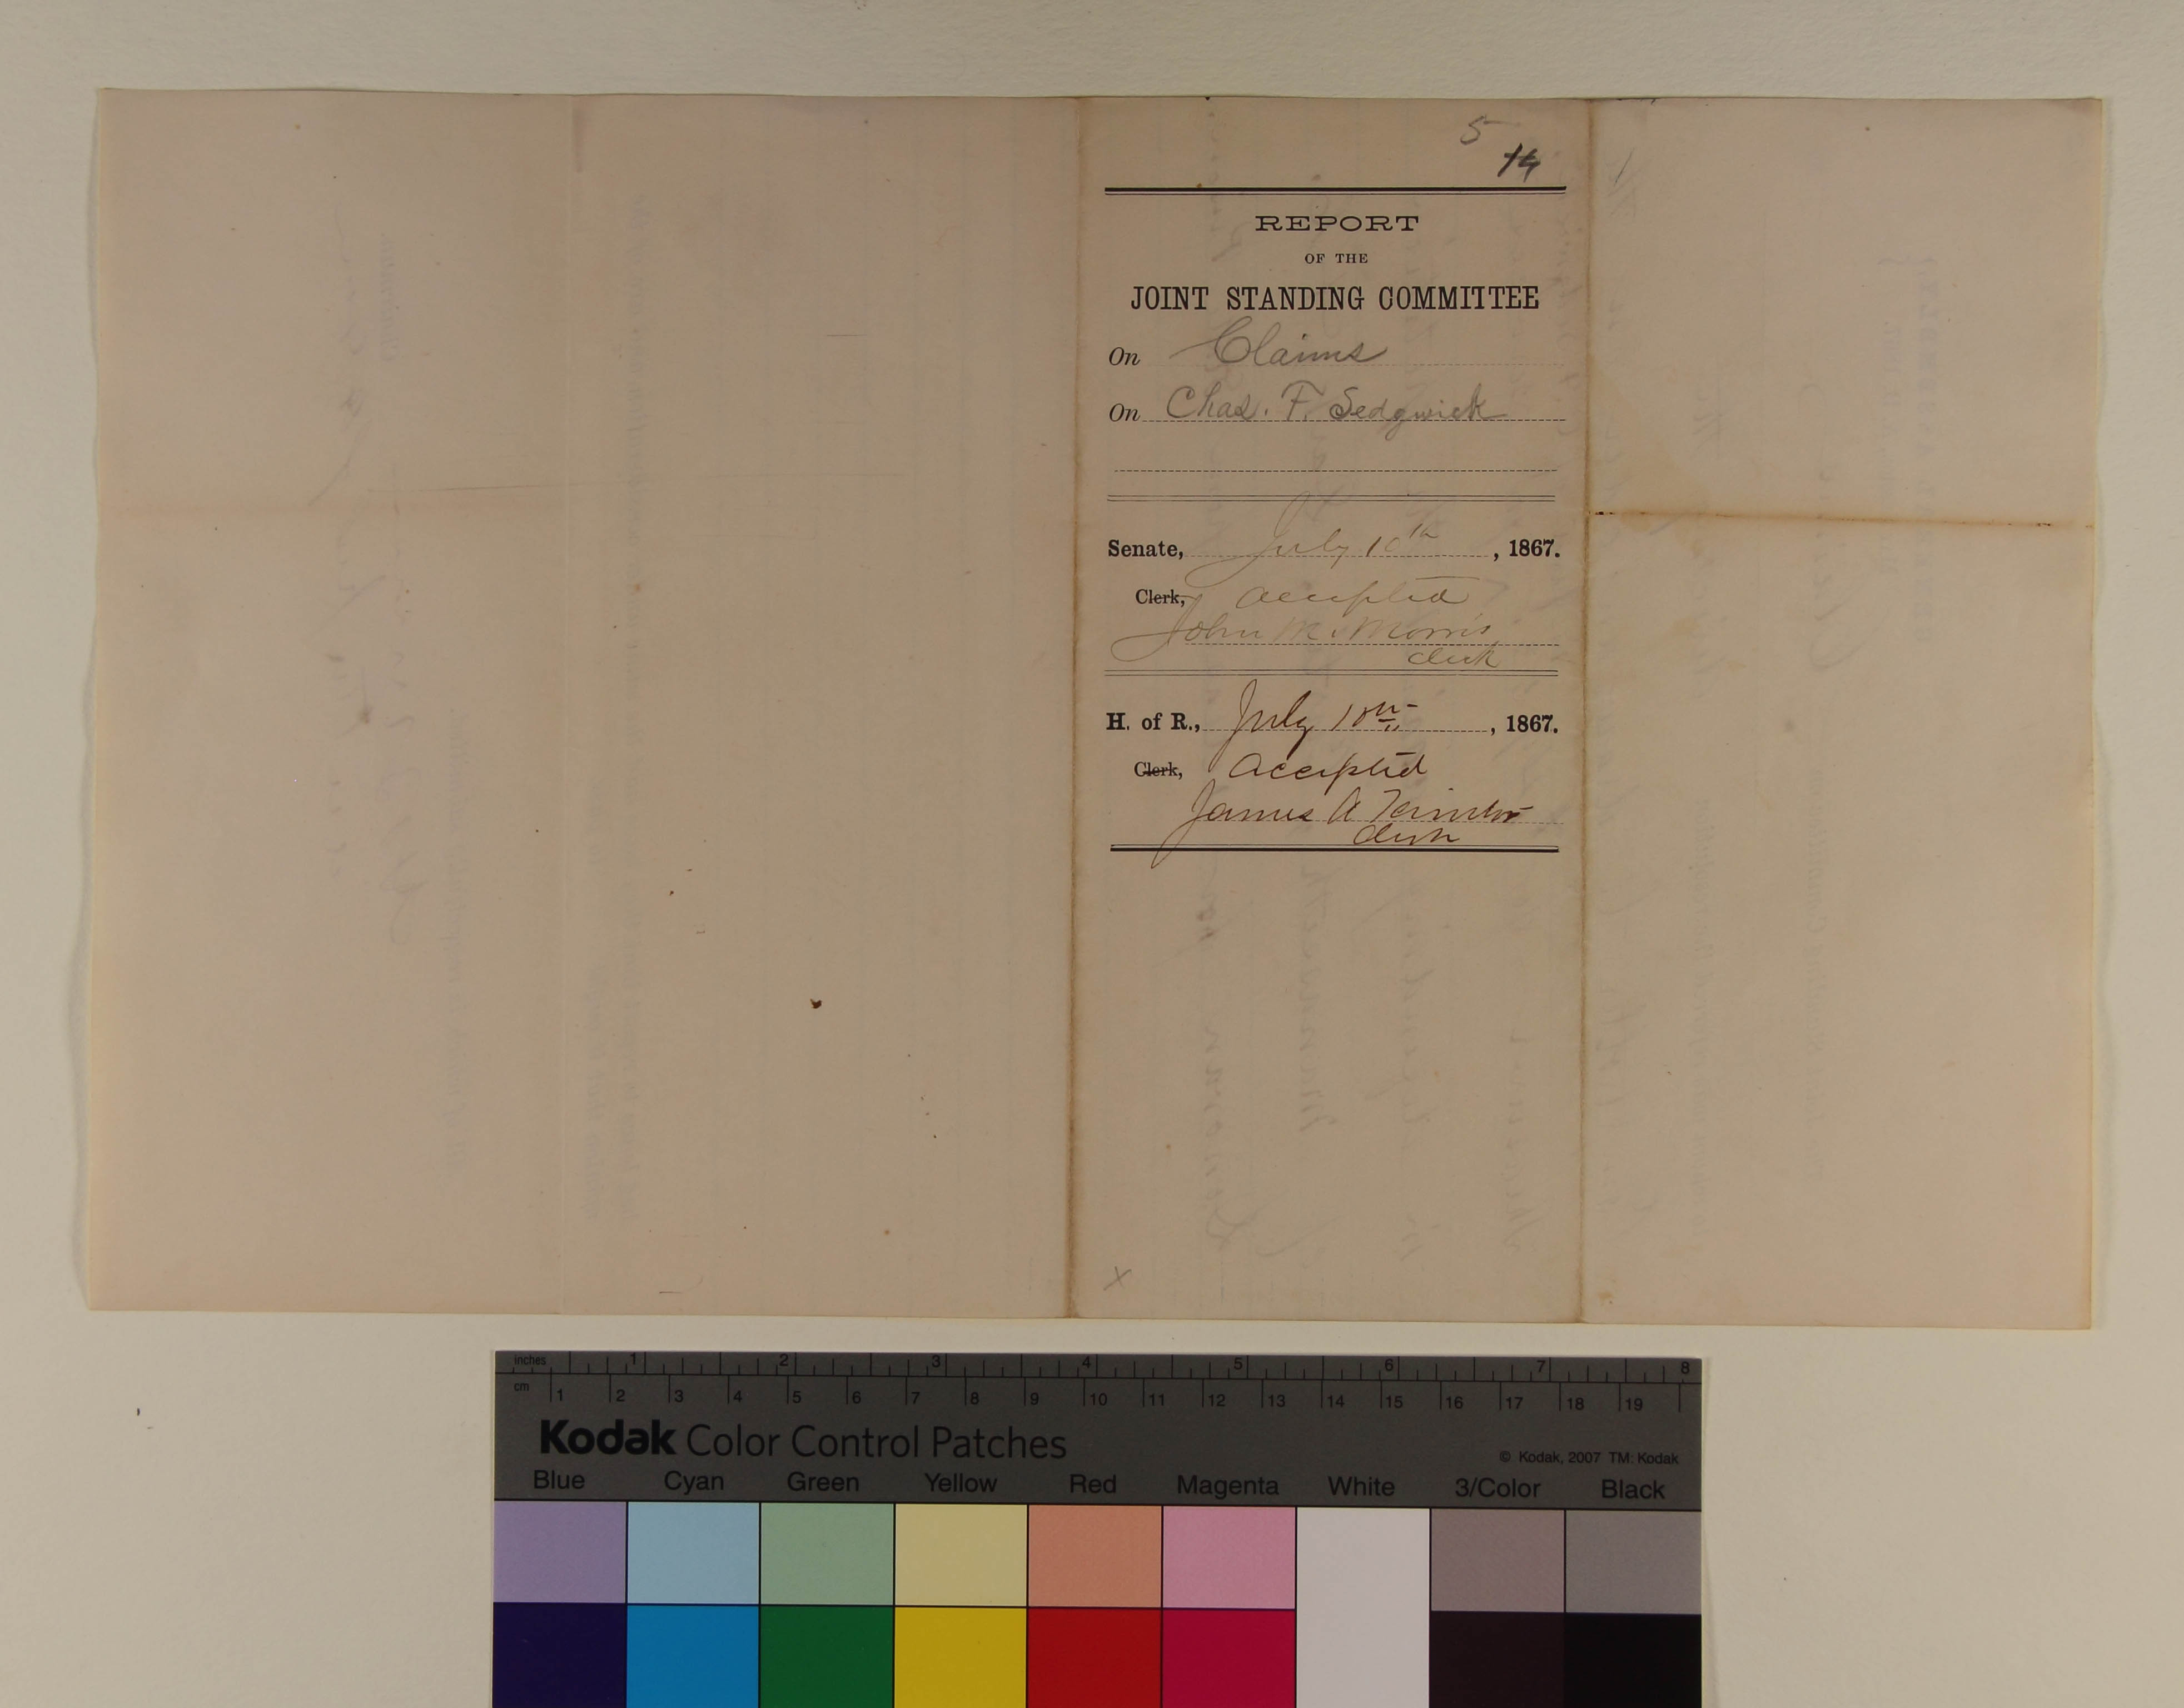 5
14
REPORT
OF THE
JOINT STANDING COMMITTEE
On Claims
On Chas. F. Sedgwick
Senate, July 10th, 1867.
Clerk, accepted
John M. Morris,
clerk
H. of R., July 10th, 1867.
Clerk, Accepted
James A
Clerk
x
inches 1 2 3 4 5 6 7 8
cm 1 2 3 4 5 6 7 8 9 10 11 12 13 14 15 16 17 18 19
Kodak Color Control Patches
© Kodak, 2007 TM: Kodak
Blue Cyan Green Yellow Red Magenta White 3/Color Black